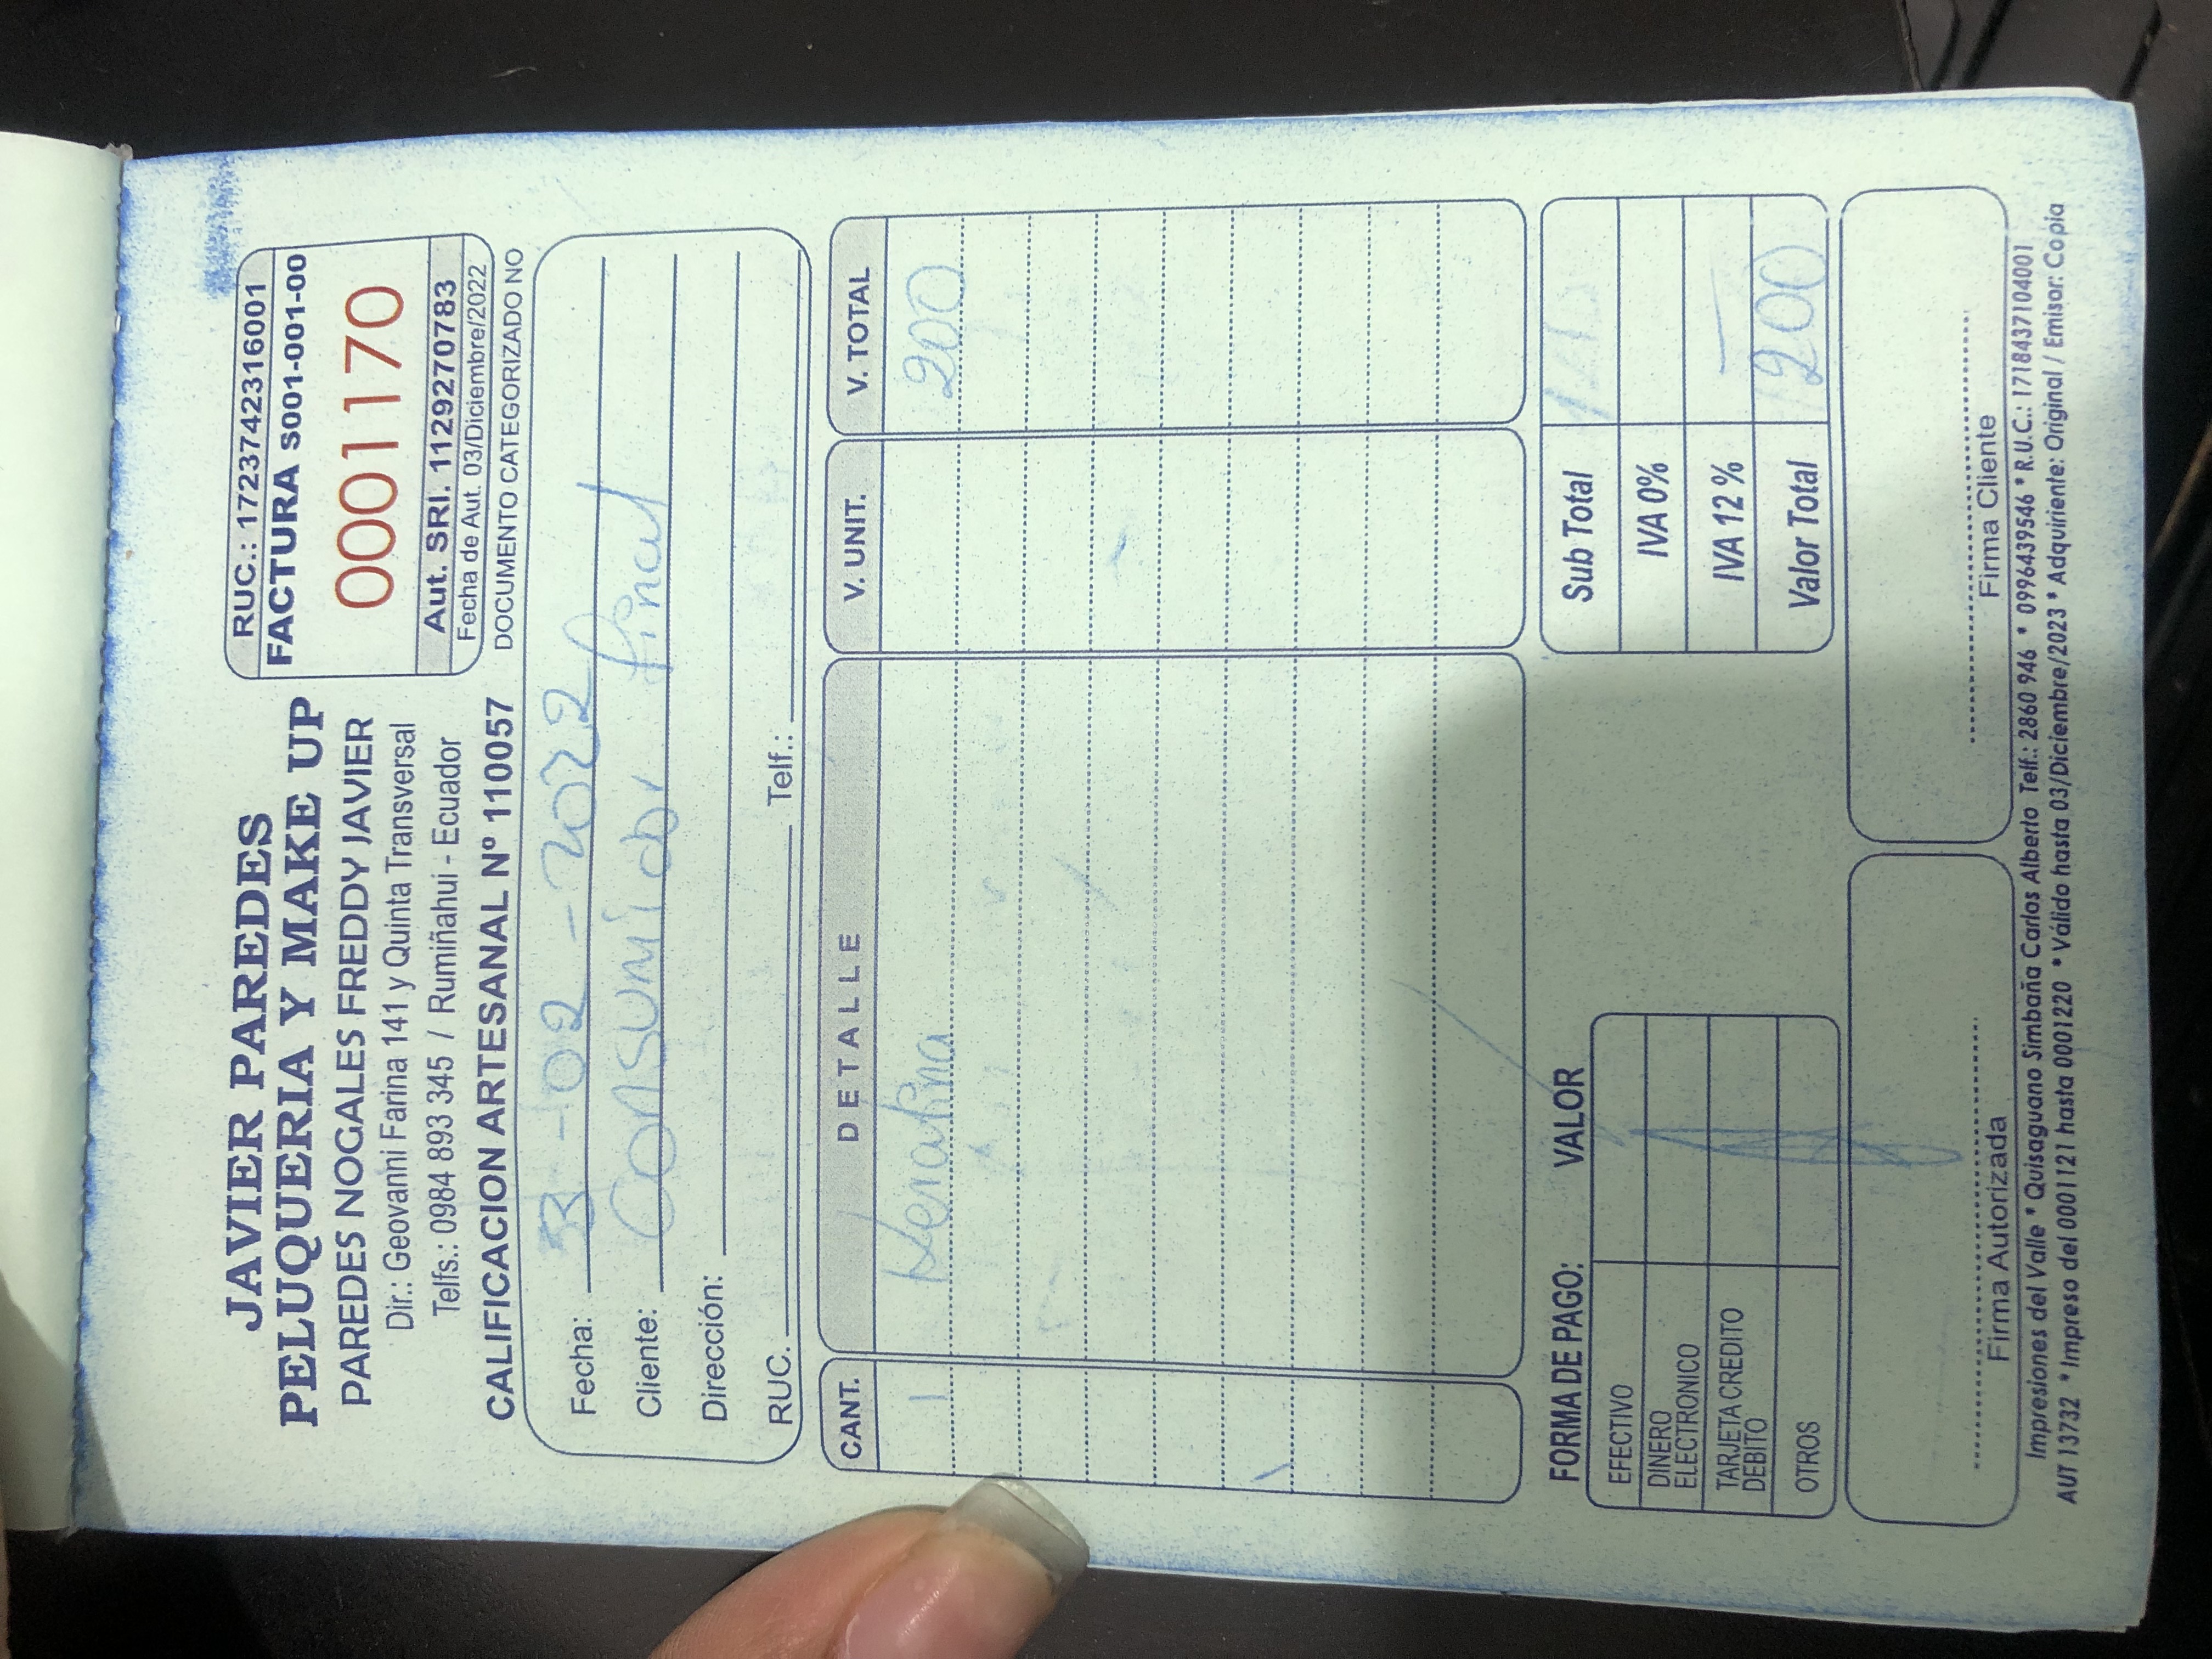 JAVIER PAREDES
PELUQUERIA Y MAKE UP
PAREDES NOGALES FREDDY JAVIER
Dir.: Geovanni Farina 141 y Quinta Transversal
Telfs.: 0984 893 345 / Rumiñahui - Ecuador
CALIFICACION ARTESANAL Nº 110057
RUC.: 1723742316001
FACTURA S001-001-00
0001170
Aut. SRI. 1129270783
Fecha de Aut. 03/Diciembre/2022
DOCUMENTO CATEGORIZADO NO
Fecha: 3-02-2022
Cliente: Consumidor final
Dirección:
RUC. Telf.:
CANT. DETALLE V. UNIT. V. TOTAL
1 Keratina 200
FORMA DE PAGO: VALOR
EFECTIVO
DINERO
ELECTRONICO
TARJETA CREDITO
DEBITO
OTROS
Sub Total
IVA 0%
IVA 12 % —
Valor Total 200
Firma Autorizada
Firma Cliente
Impresiones del Valle * Quisaguano Simbaña Carlos Alberto Telf.: 2860 946 * 0996439546 * R.U.C.: 1718437104001
AUT 13732 * Impreso del 0001121 hasta 0001220 * Válido hasta 03/Diciembre/2023 * Adquiriente: Original / Emisor: Copia